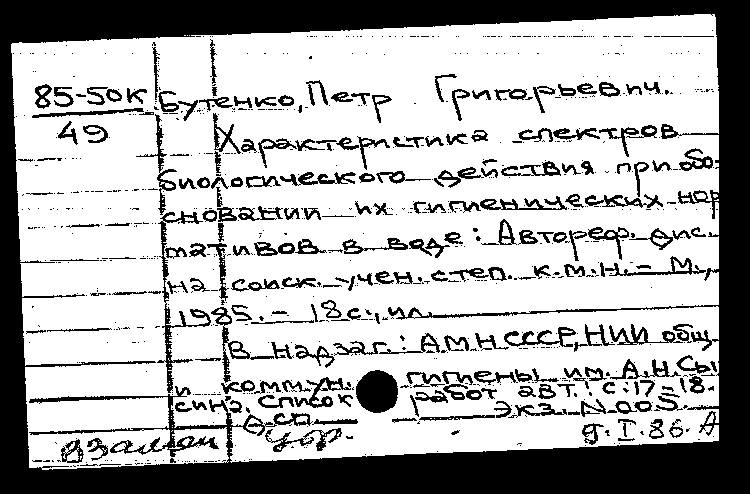 85-50К
49
Бутенко, Петр Григорьевич.
Характеристика спектров
биологического действия при обо-
сновании их гигиенических нор
мативов в воде: Автореф. дис.
на соиск. учен. степ. к.м.н. – М.,
1985. – 18с., ил.
В надзаг.: АМН СССР, НИИ общ.
и коммун. гигиены им. А.Н. Сы
сина. Список работ авт.: с. 17-18.
Экз. N 005.
д. I. 86. А